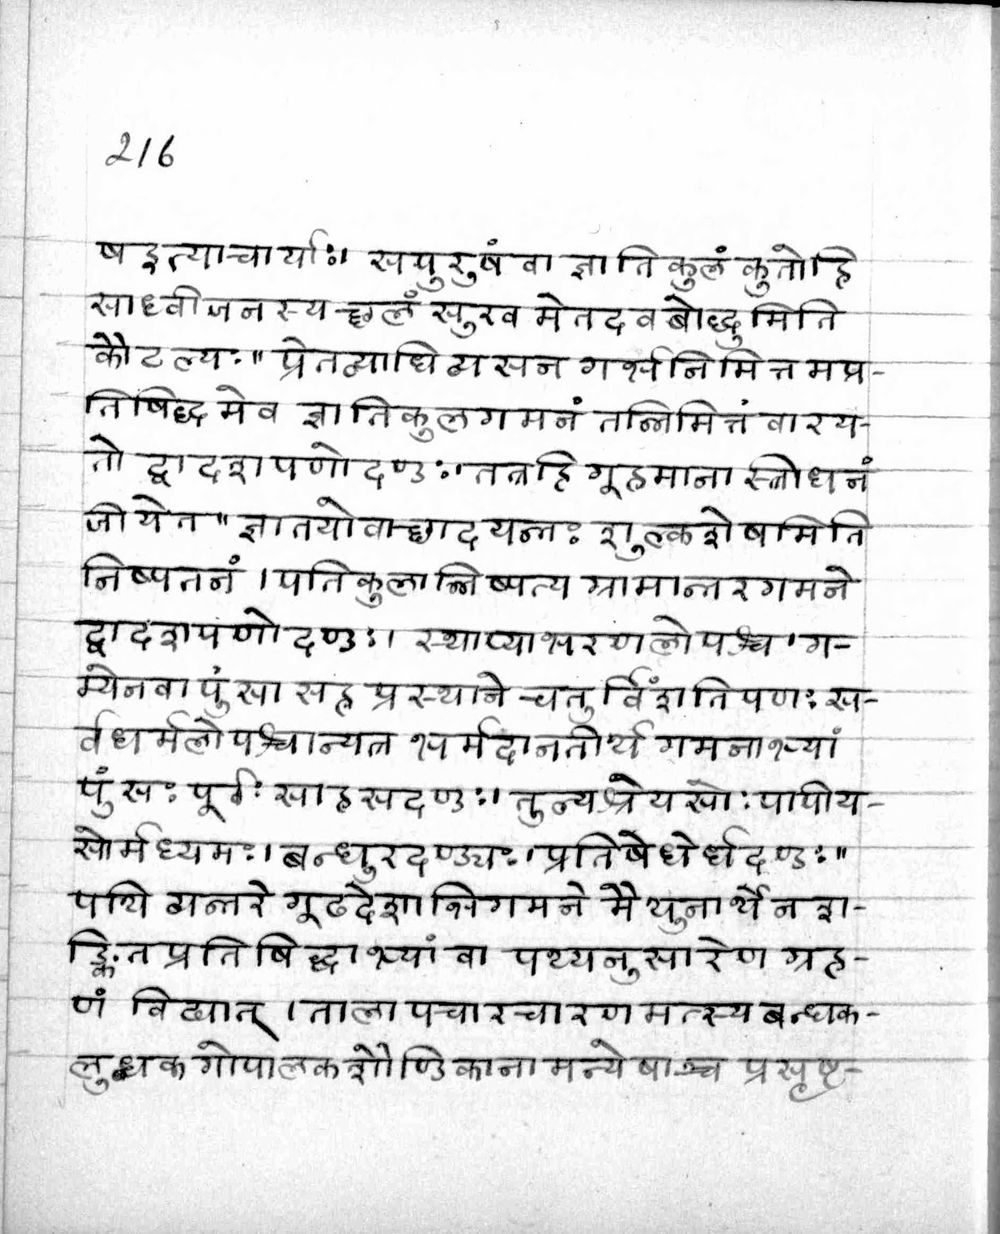 216
ष इत्याचार्याः। सपुरुषं वा ज्ञातिकुलं कुतोहि
साध्वीजनस्य च्छलं सुखमेतदवबोद्धुमिति
कौटल्यः॥ प्रेतव्याधिव्यसनगर्भनिमित्तमप्र-
तिषिद्धमेव ज्ञातिकुलगमनं तन्निमित्तं वारय-
तो द्वादशपणोदण्डः। तत्रहि गूहमाना स्त्रीधनं
जीयेत॥ ज्ञातयोवाच्छादयन्तः शुल्कशेषमिति
निष्पतनं। पतिकुलान्निष्पत्य ग्रामान्तरगमने
द्वादशपणोदण्डः। स्थाप्याभरणलोपश्च। ग-
म्येनवा पुंसा सह प्रस्थाने चतुर्विंशतिपणः स-
र्वधर्मलोपश्चान्यत्र भर्मदानतीर्थगमनाभ्यां
पुंसः पूर्वः साहसदण्डः। तुल्यश्रेयसोः पापीय-
सोर्मध्यमः। बन्धुरदण्ड्यः। प्रतिषेधेर्धदण्डः॥
पथि व्यन्तरे गूढदेशाभिगमने मैथुनार्थेन श-
ङ्कितप्रतिषिद्धाभ्यां वा पथ्यनुसारेण ग्रह-
णं विद्यात्। तालापचारचारणमत्स्यबन्धक-
लुब्धकगोपालकशौण्डिकानामन्येषाञ्च प्रसृष्ट-